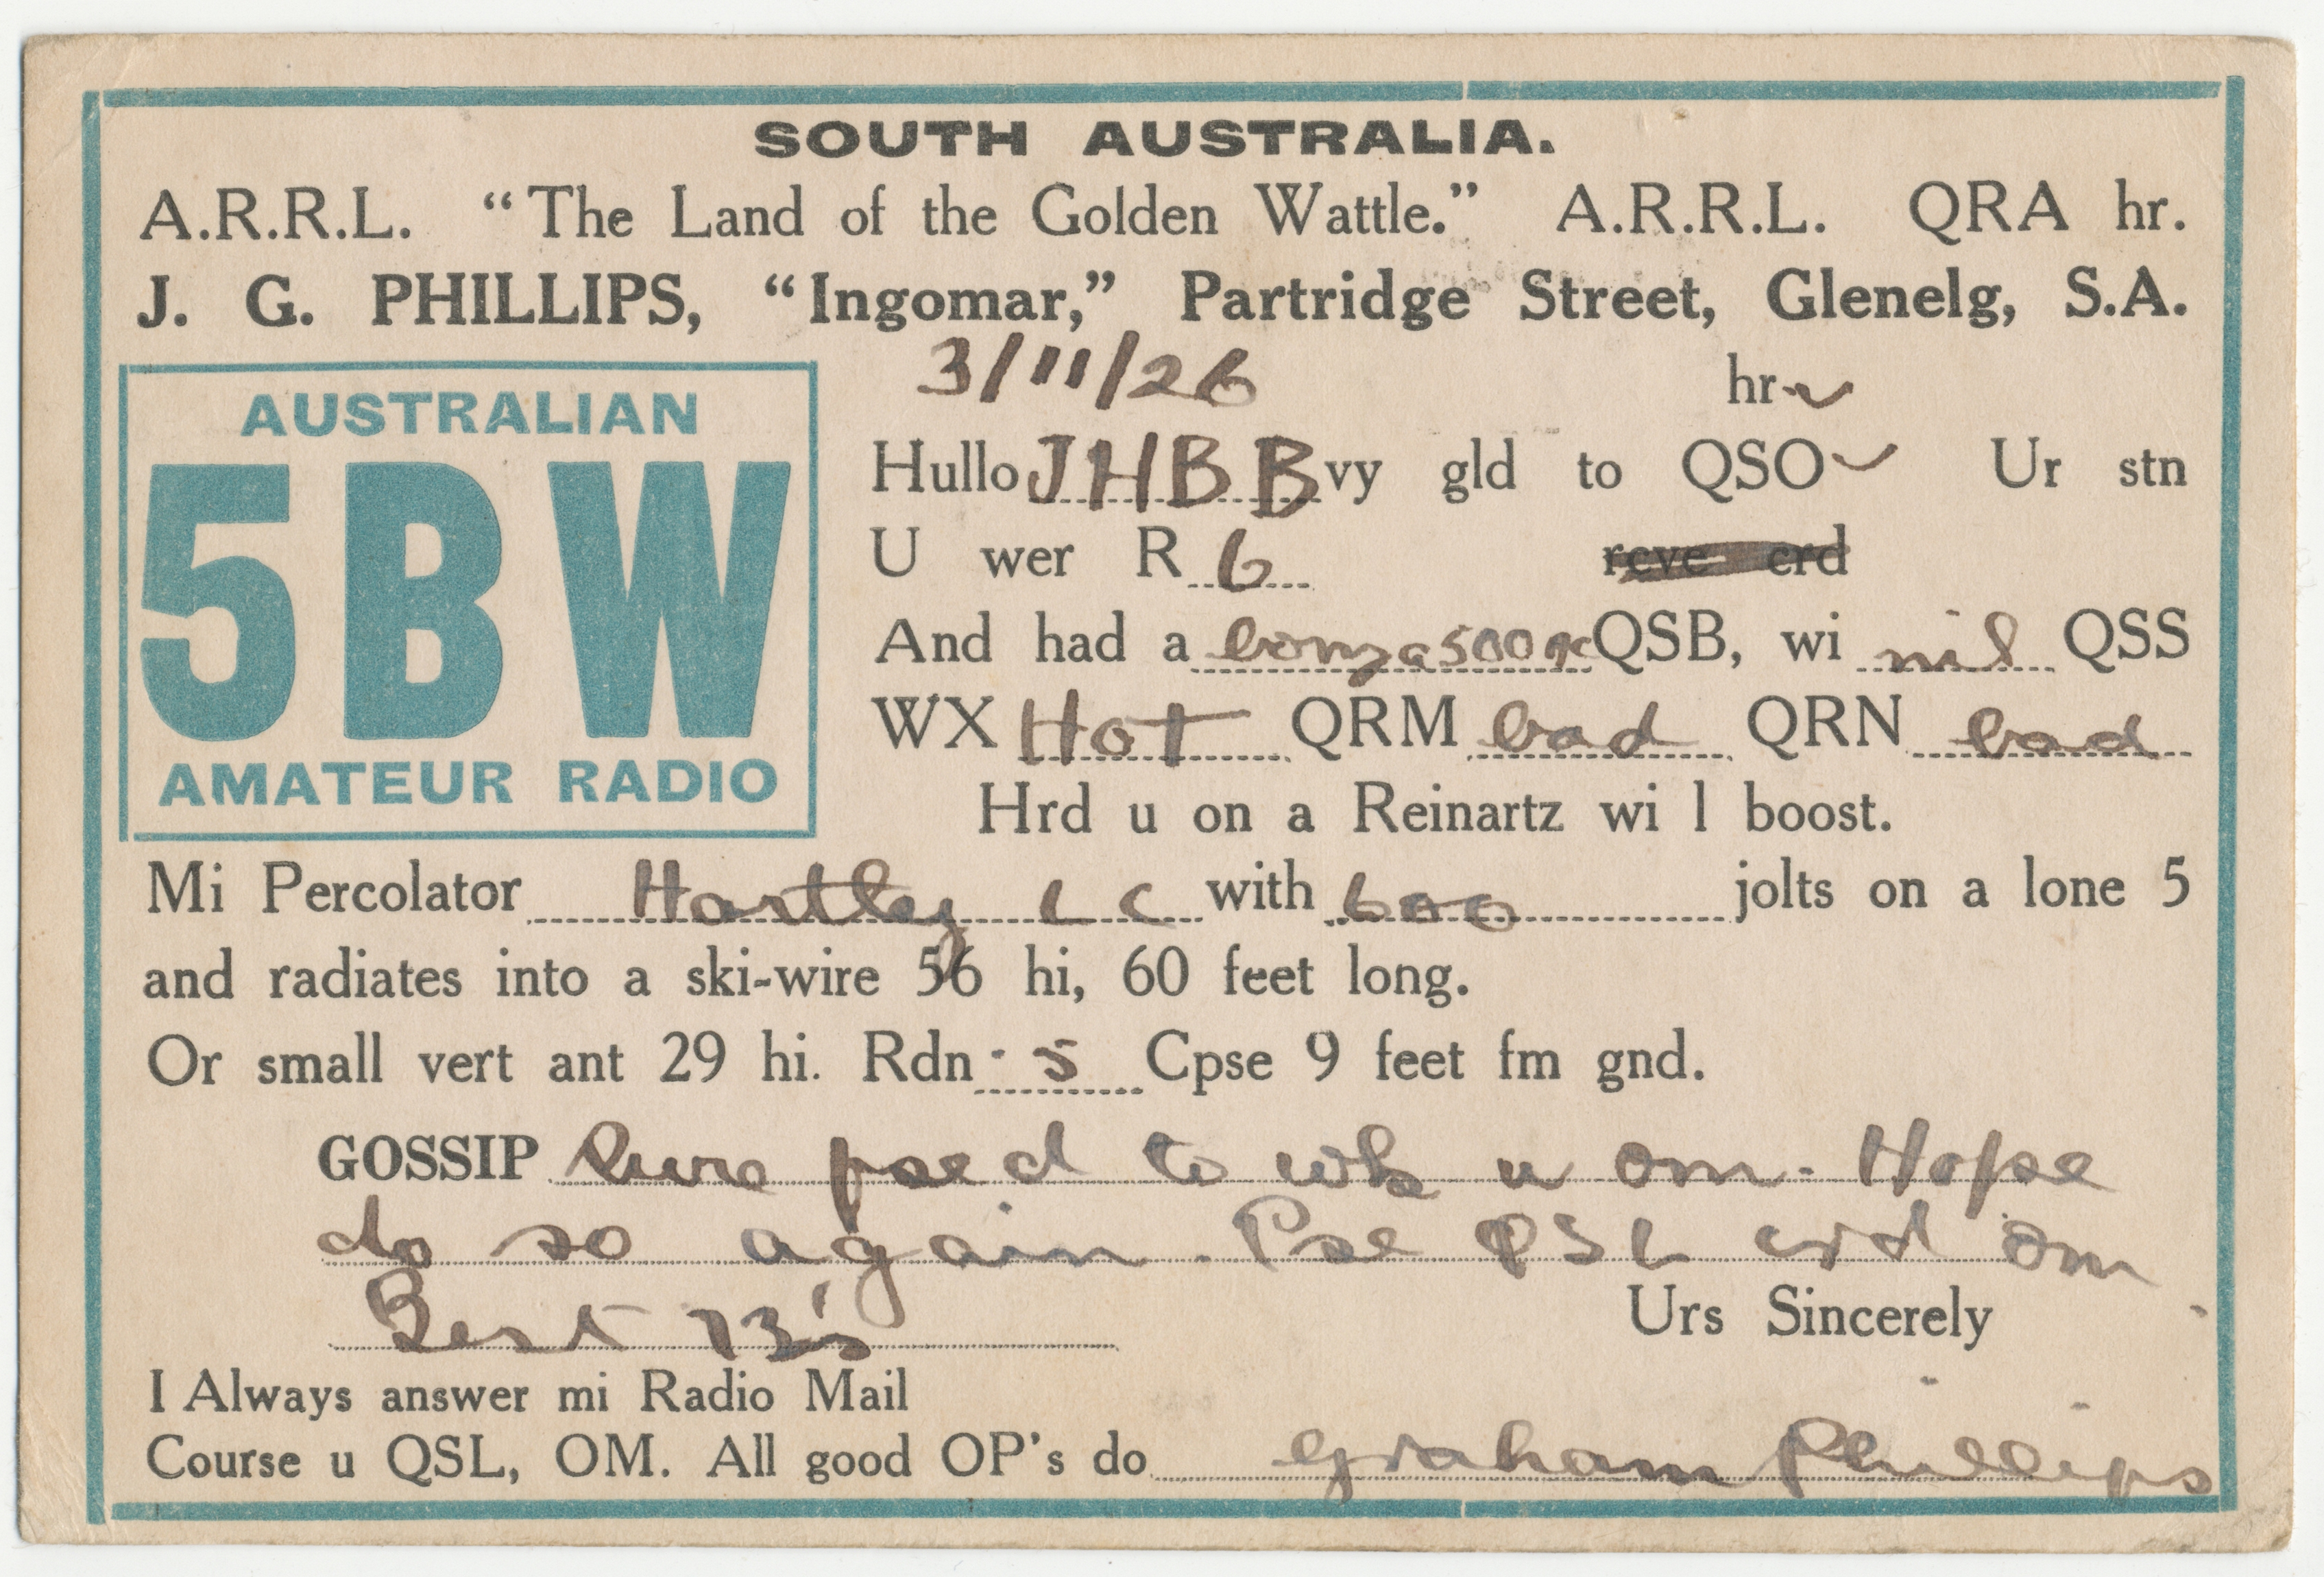 SOUTH AUSTRALIA.
A.R.R.L. “The Land of the Golden Wattle.” A.R.R.L. QRA hr.
J. G. PHILLIPS, “Ingomar,” Partridge Street, Glenelg, S.A.
3/11/26 hr
AUSTRALIAN
5BW
AMATEUR RADIO
Hullo JHBB vy gld to QSO Ur stn
U wer R 6 rcve crd
And had a bonza 500 QSB, wi nil QSS
WX Hot QRM bad QRN bad
Hrd u on a Reinartz wi 1 boost.
Mi Percolator Hartley LC with 600 jolts on a lone 5
and radiates into a ski-wire 56 hi, 60 feet long.
Or small vert ant 29 hi. Rdn .5 Cpse 9 feet fm gnd.
GOSSIP Sure psed to wk u om. Hope
do so again. Pse QSL crd om
Best 73's
Urs Sincerely
I Always answer mi Radio Mail
Course u QSL, OM. All good OP's do Graham Phillips